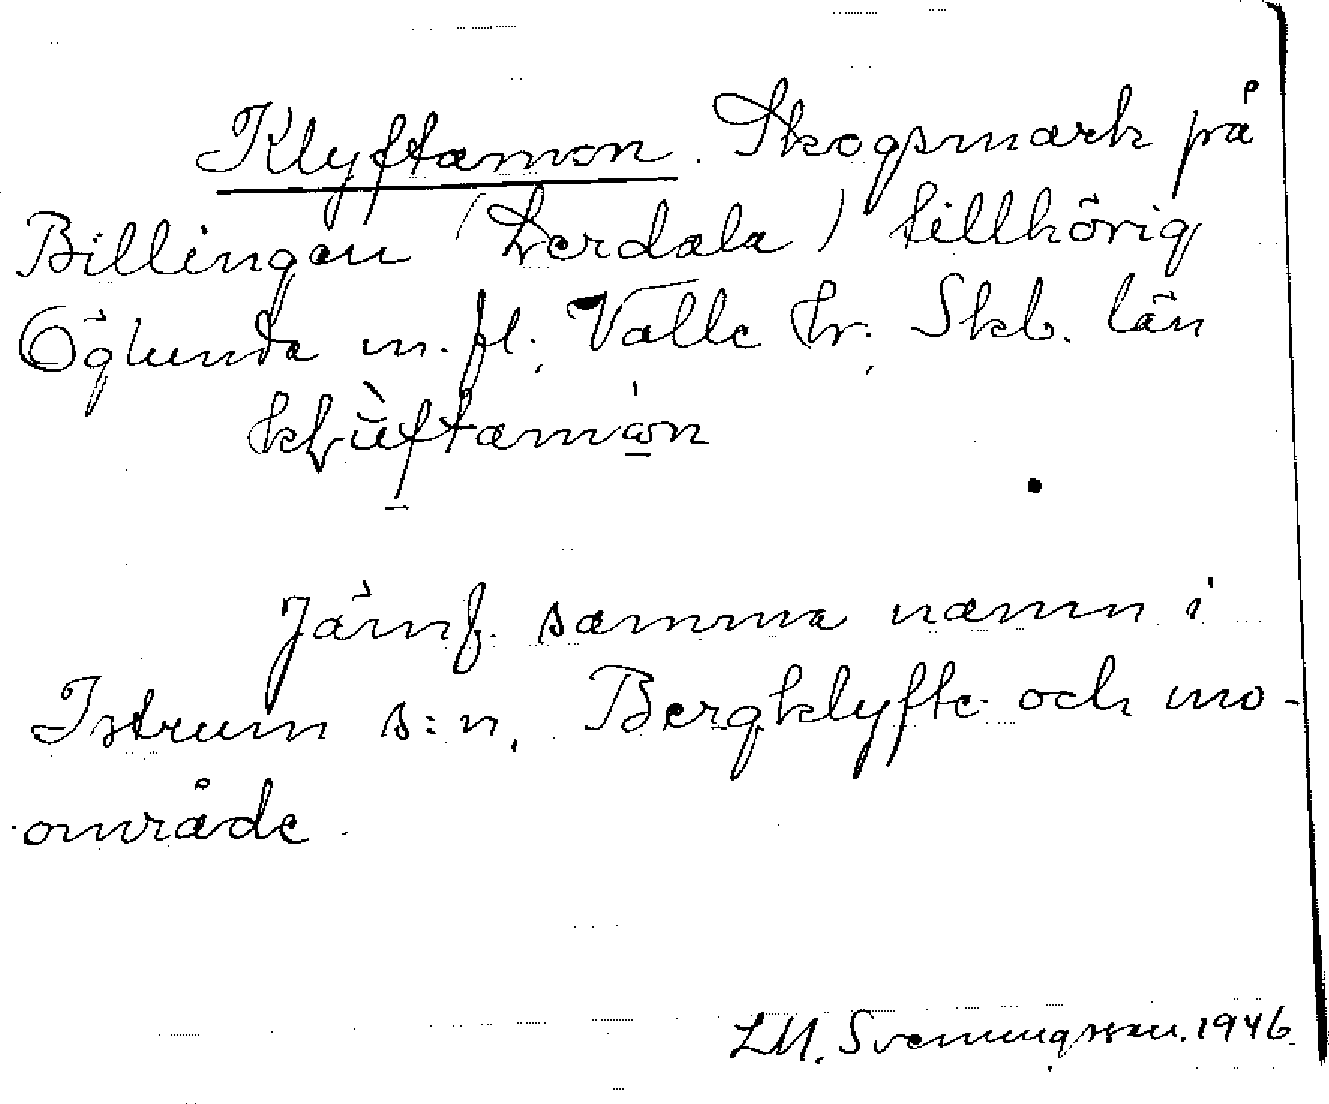 Klyftamon. Skogsmark på
Billingen (Lerdala) tillhörig
Öglunda m. fl., Valle hr., Skb. län
Jämf. samma namn i
Istrum s:n. Bergklyfte och mo-
område.
LM. Svenungsson. 1946.